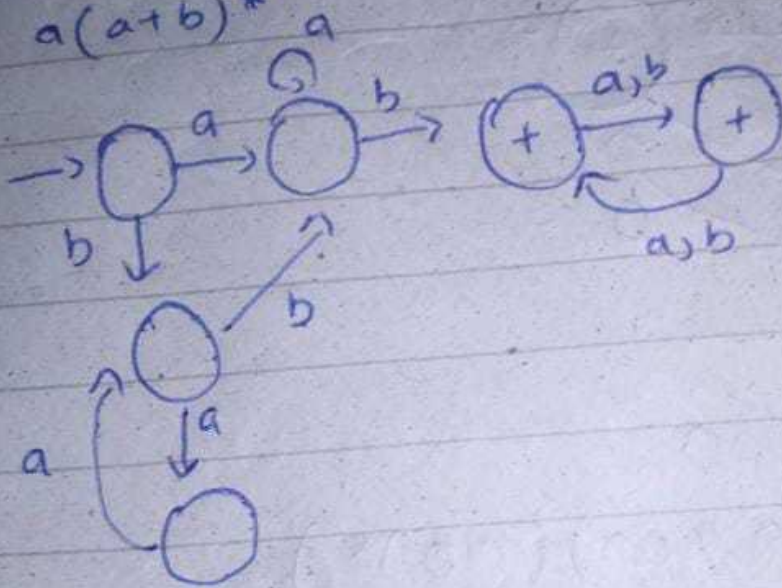 a(a+b)*
a
a b a,b
+ +
b a,b
b
a
a